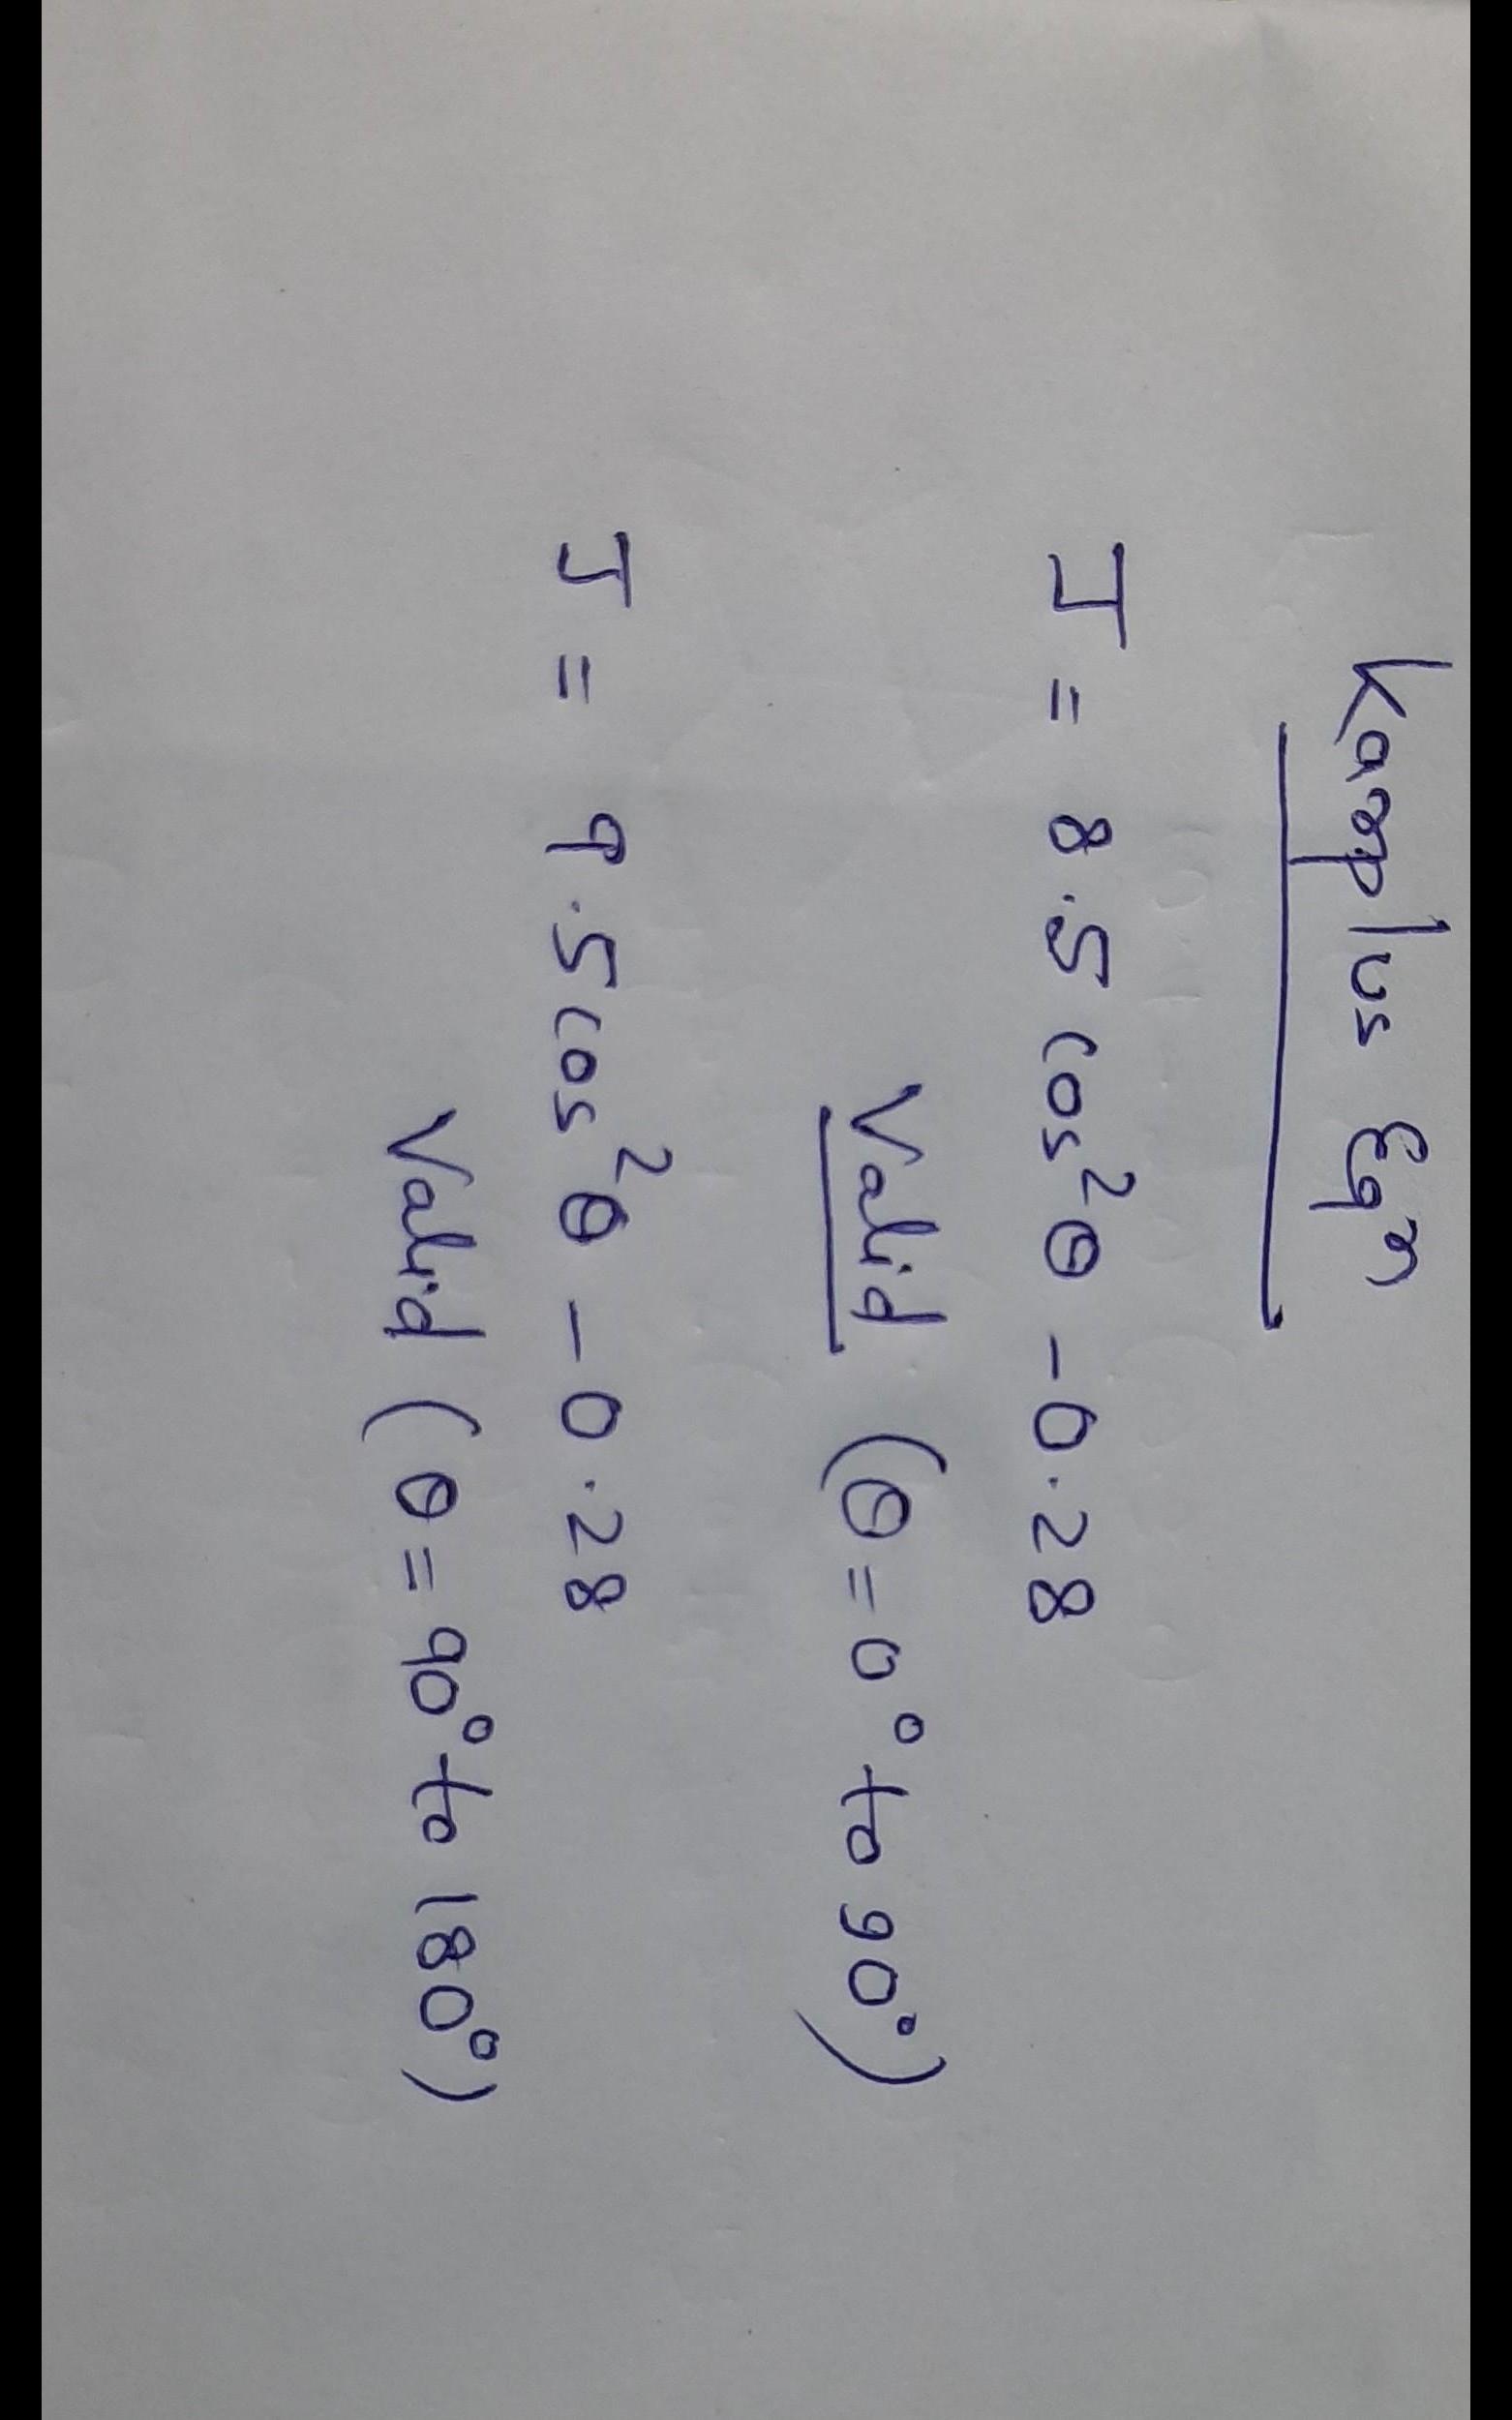 Karplus Eqn
J = 8.5 cos²θ - 0.28
Valid (θ = 0° to 90°)
J = 9.5 cos²θ - 0.28
Valid (θ = 90° to 180°)